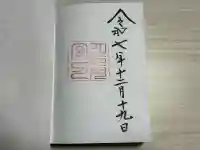 令和七年十二月十九日